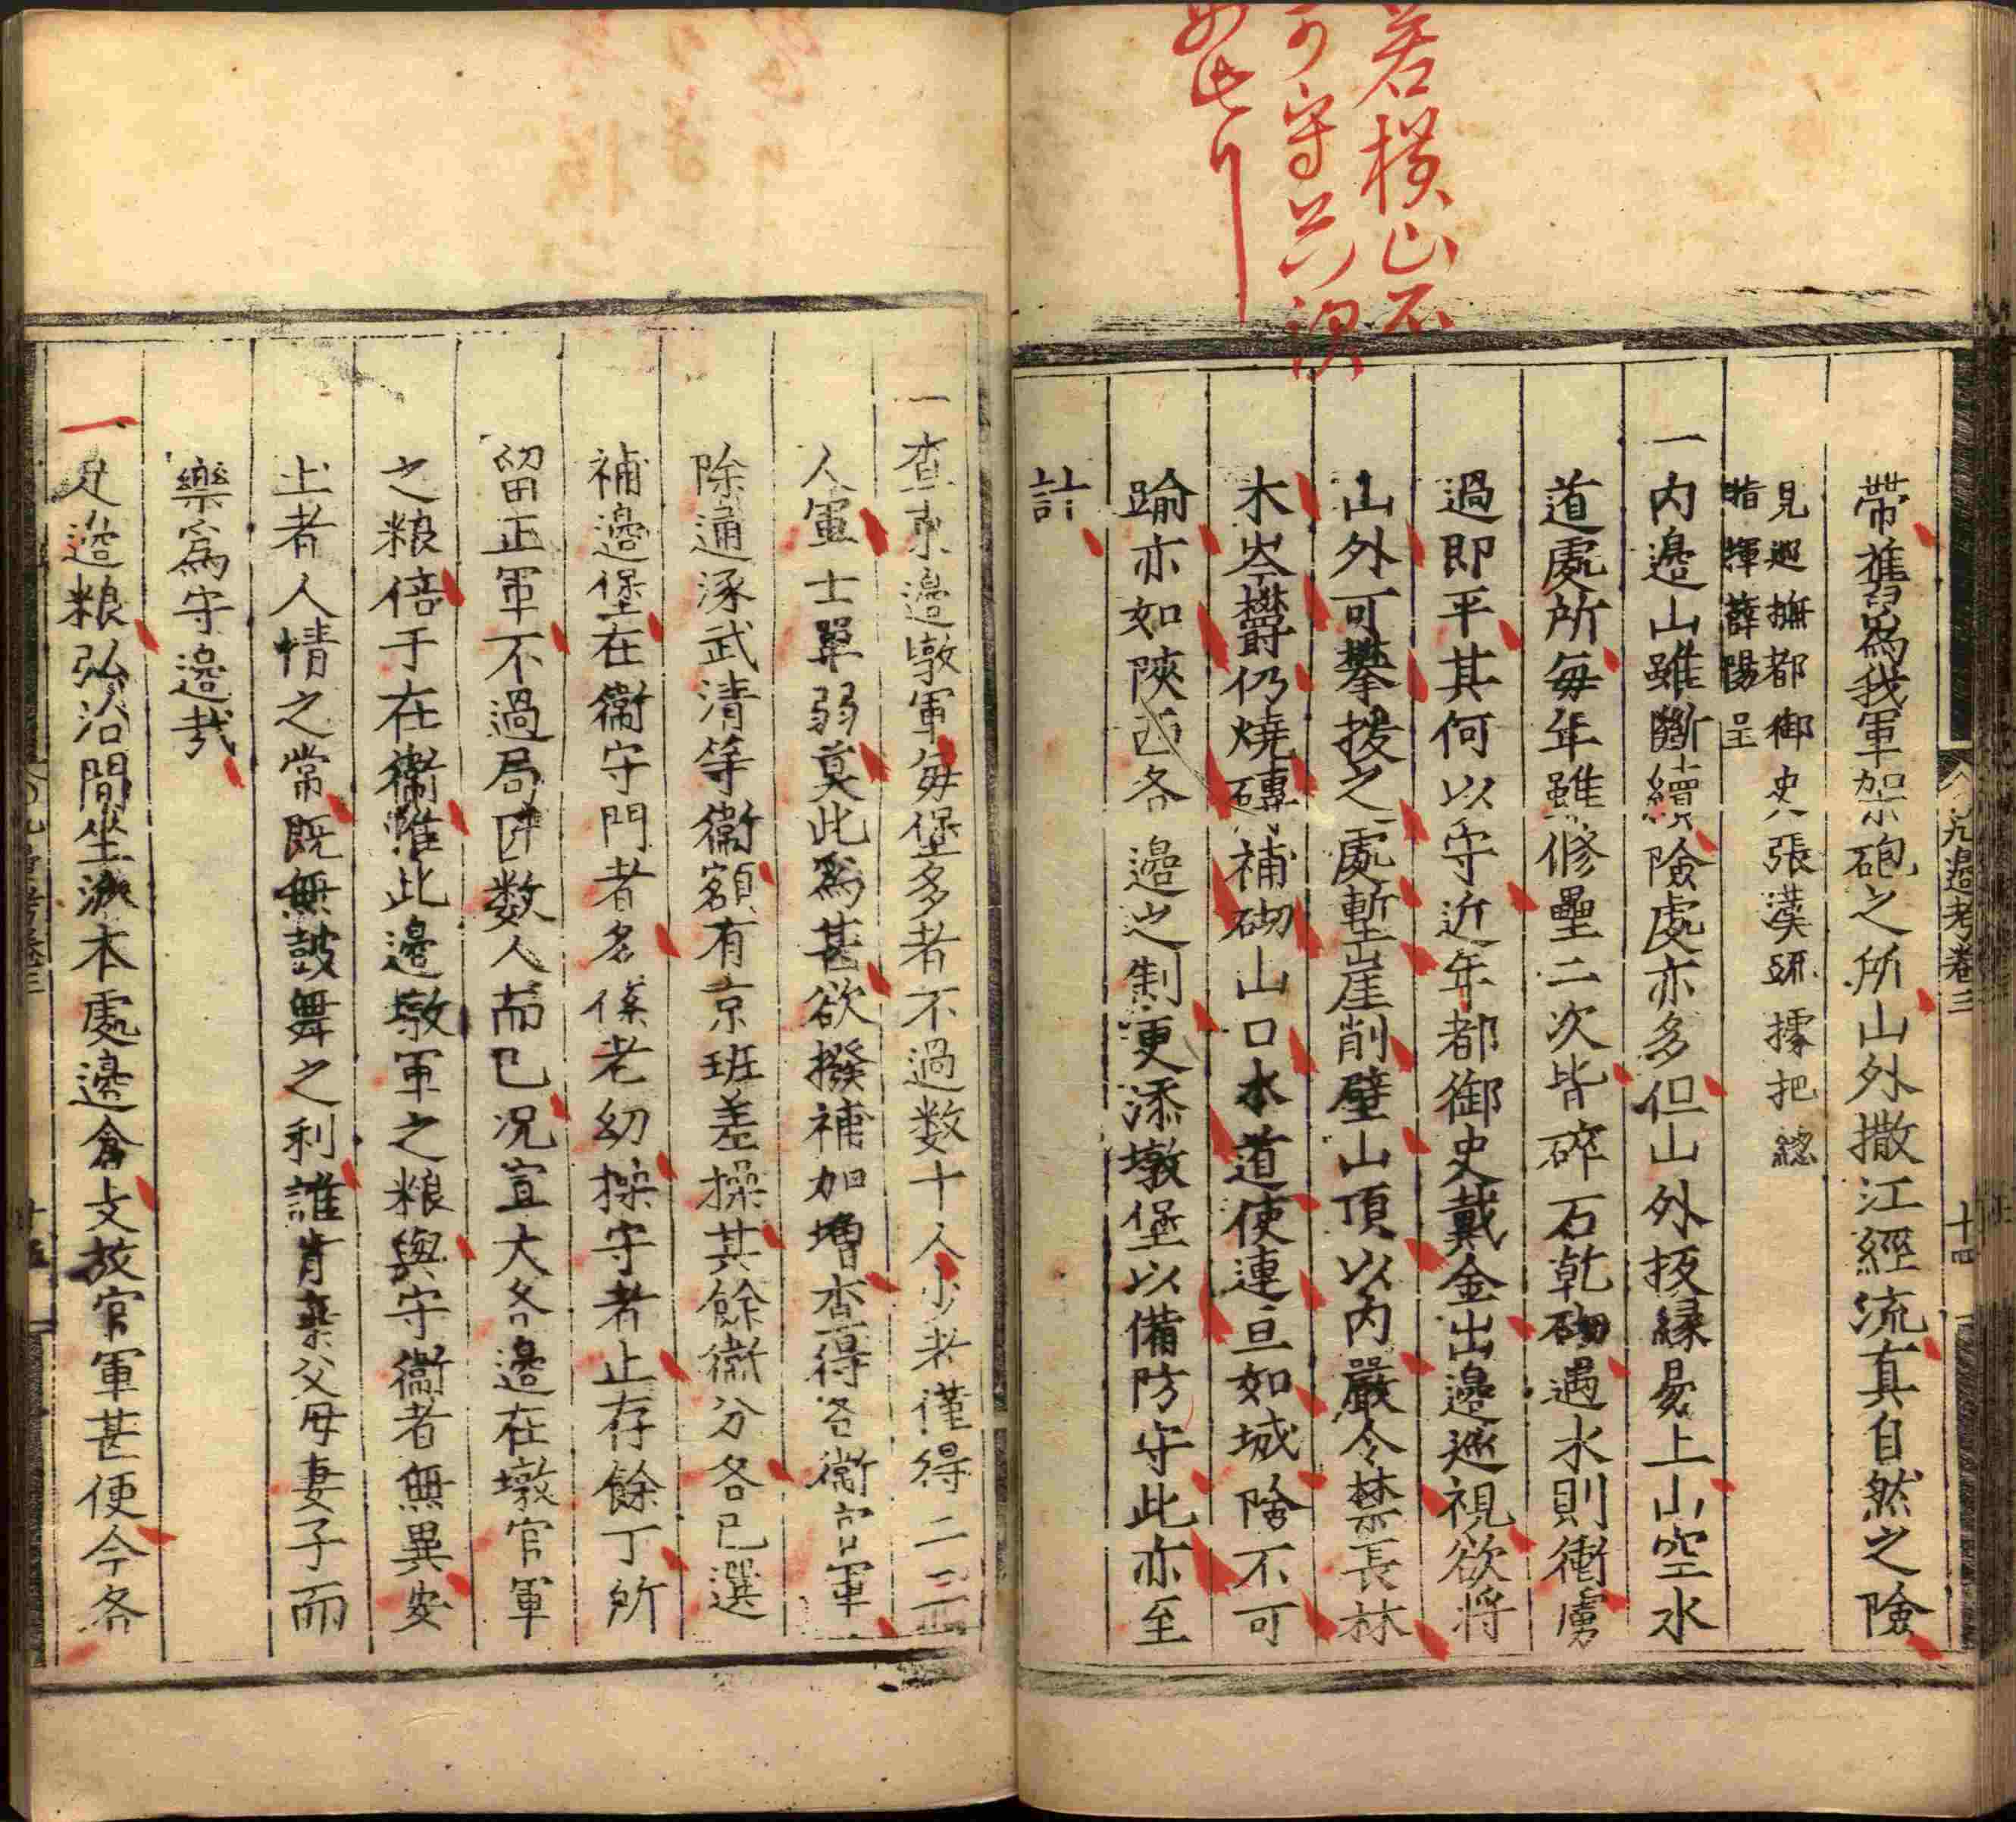 若橫山不
可守只須
如此行
九邊考卷三
十四
帶舊爲我軍架砲之所山外撒江經流真自然之險
見巡撫都御史張漢疏據把總
指揮薛陽呈
一内邊山雖斷續險處亦多但山外扳緣易上山空水
道處所每年雖修壘二次皆碎石乾砌遇水則衝虜
過即平其何以守近年都御史戴金出邊巡視欲將
山外可攀援之處塹崖削壁山頂以内嚴令禁長林
木岑欝仍燒磚補砌山口水道使連亘如城險不可
踰亦如陝西各邊之制更添墩堡以備防守此亦至
計
一查東邊墩軍每堡多者不過数十人少者僅得二三
人軍士單弱莫此爲甚欲撥補加增查得各衞官軍
除通涿武清等衞額有京班差操其餘衞分各已選
補邊堡在衞守門者名係老幼操守者止存餘丁所
留正軍不過局匠数人而已况宣大各邊在墩官軍
之粮倍于在衞惟此邊墩軍之粮與守衞者無異安
土者人情之常既無鼓舞之利誰肯棄父母妻子而
樂爲守邊哉
一足邊粮弘治間坐派本處邊倉支放官軍甚便今各